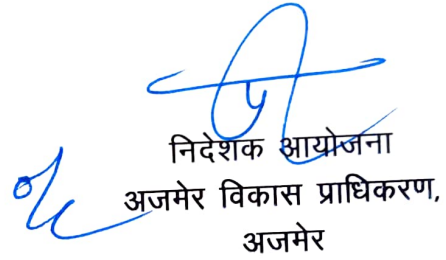 निदेशक आयोजना
अजमेर विकास प्राधिकरण,
अजमेर